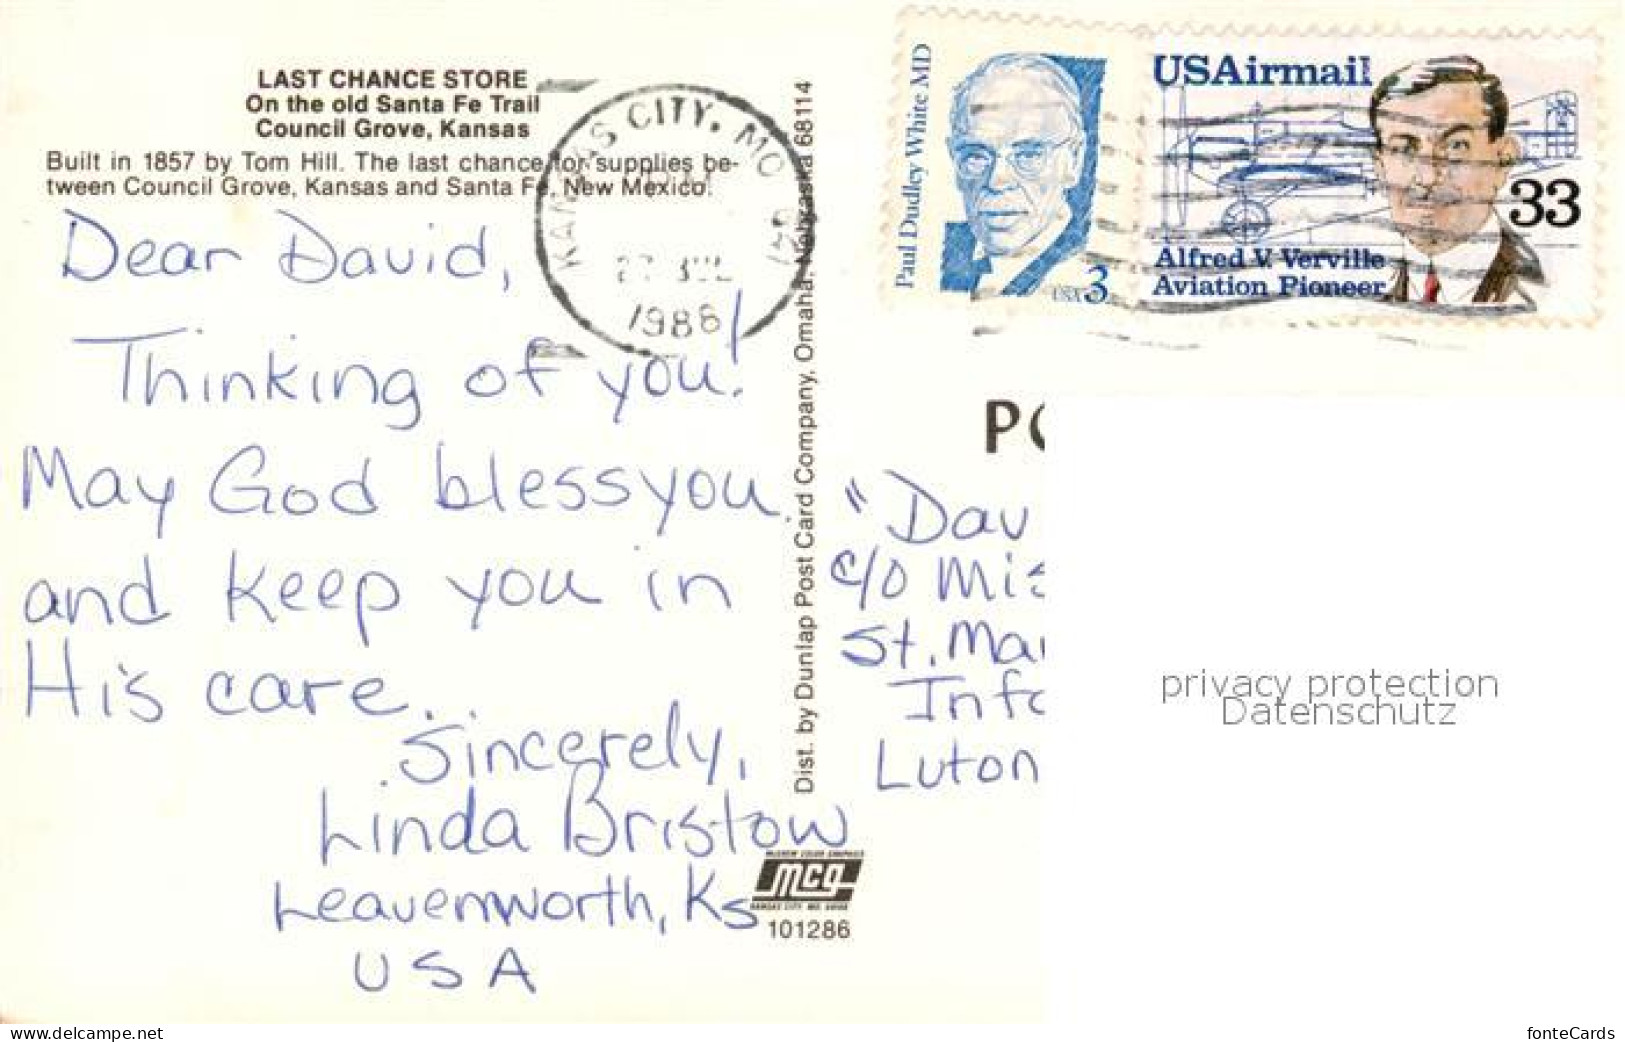 LAST CHANCE STORE
On the old Santa Fe Trail
Council Grove, Kansas
Built in 1857 by Tom Hill. The last chance for supplies be-
tween Council Grove, Kansas and Santa Fe, New Mexico.
KANSAS CITY, MO
JUL
1986
Dear David,
Thinking of you!
May God bless you
and keep you in
His care.
Sincerely,
Linda Bristow
Leavenworth, Ks
USA
Dist. by Dunlap Post Card Company, Omaha, Nebraska 68114
MCG
101286
Paul Dudley White MD
USA 3
USAirmail
33
Alfred V. Verville
Aviation Pioneer
PO
"Dav
c/o Mis
St. Mar
Info
Luton
privacy protection
Datenschutz
www.delcampe.net
fonteCards